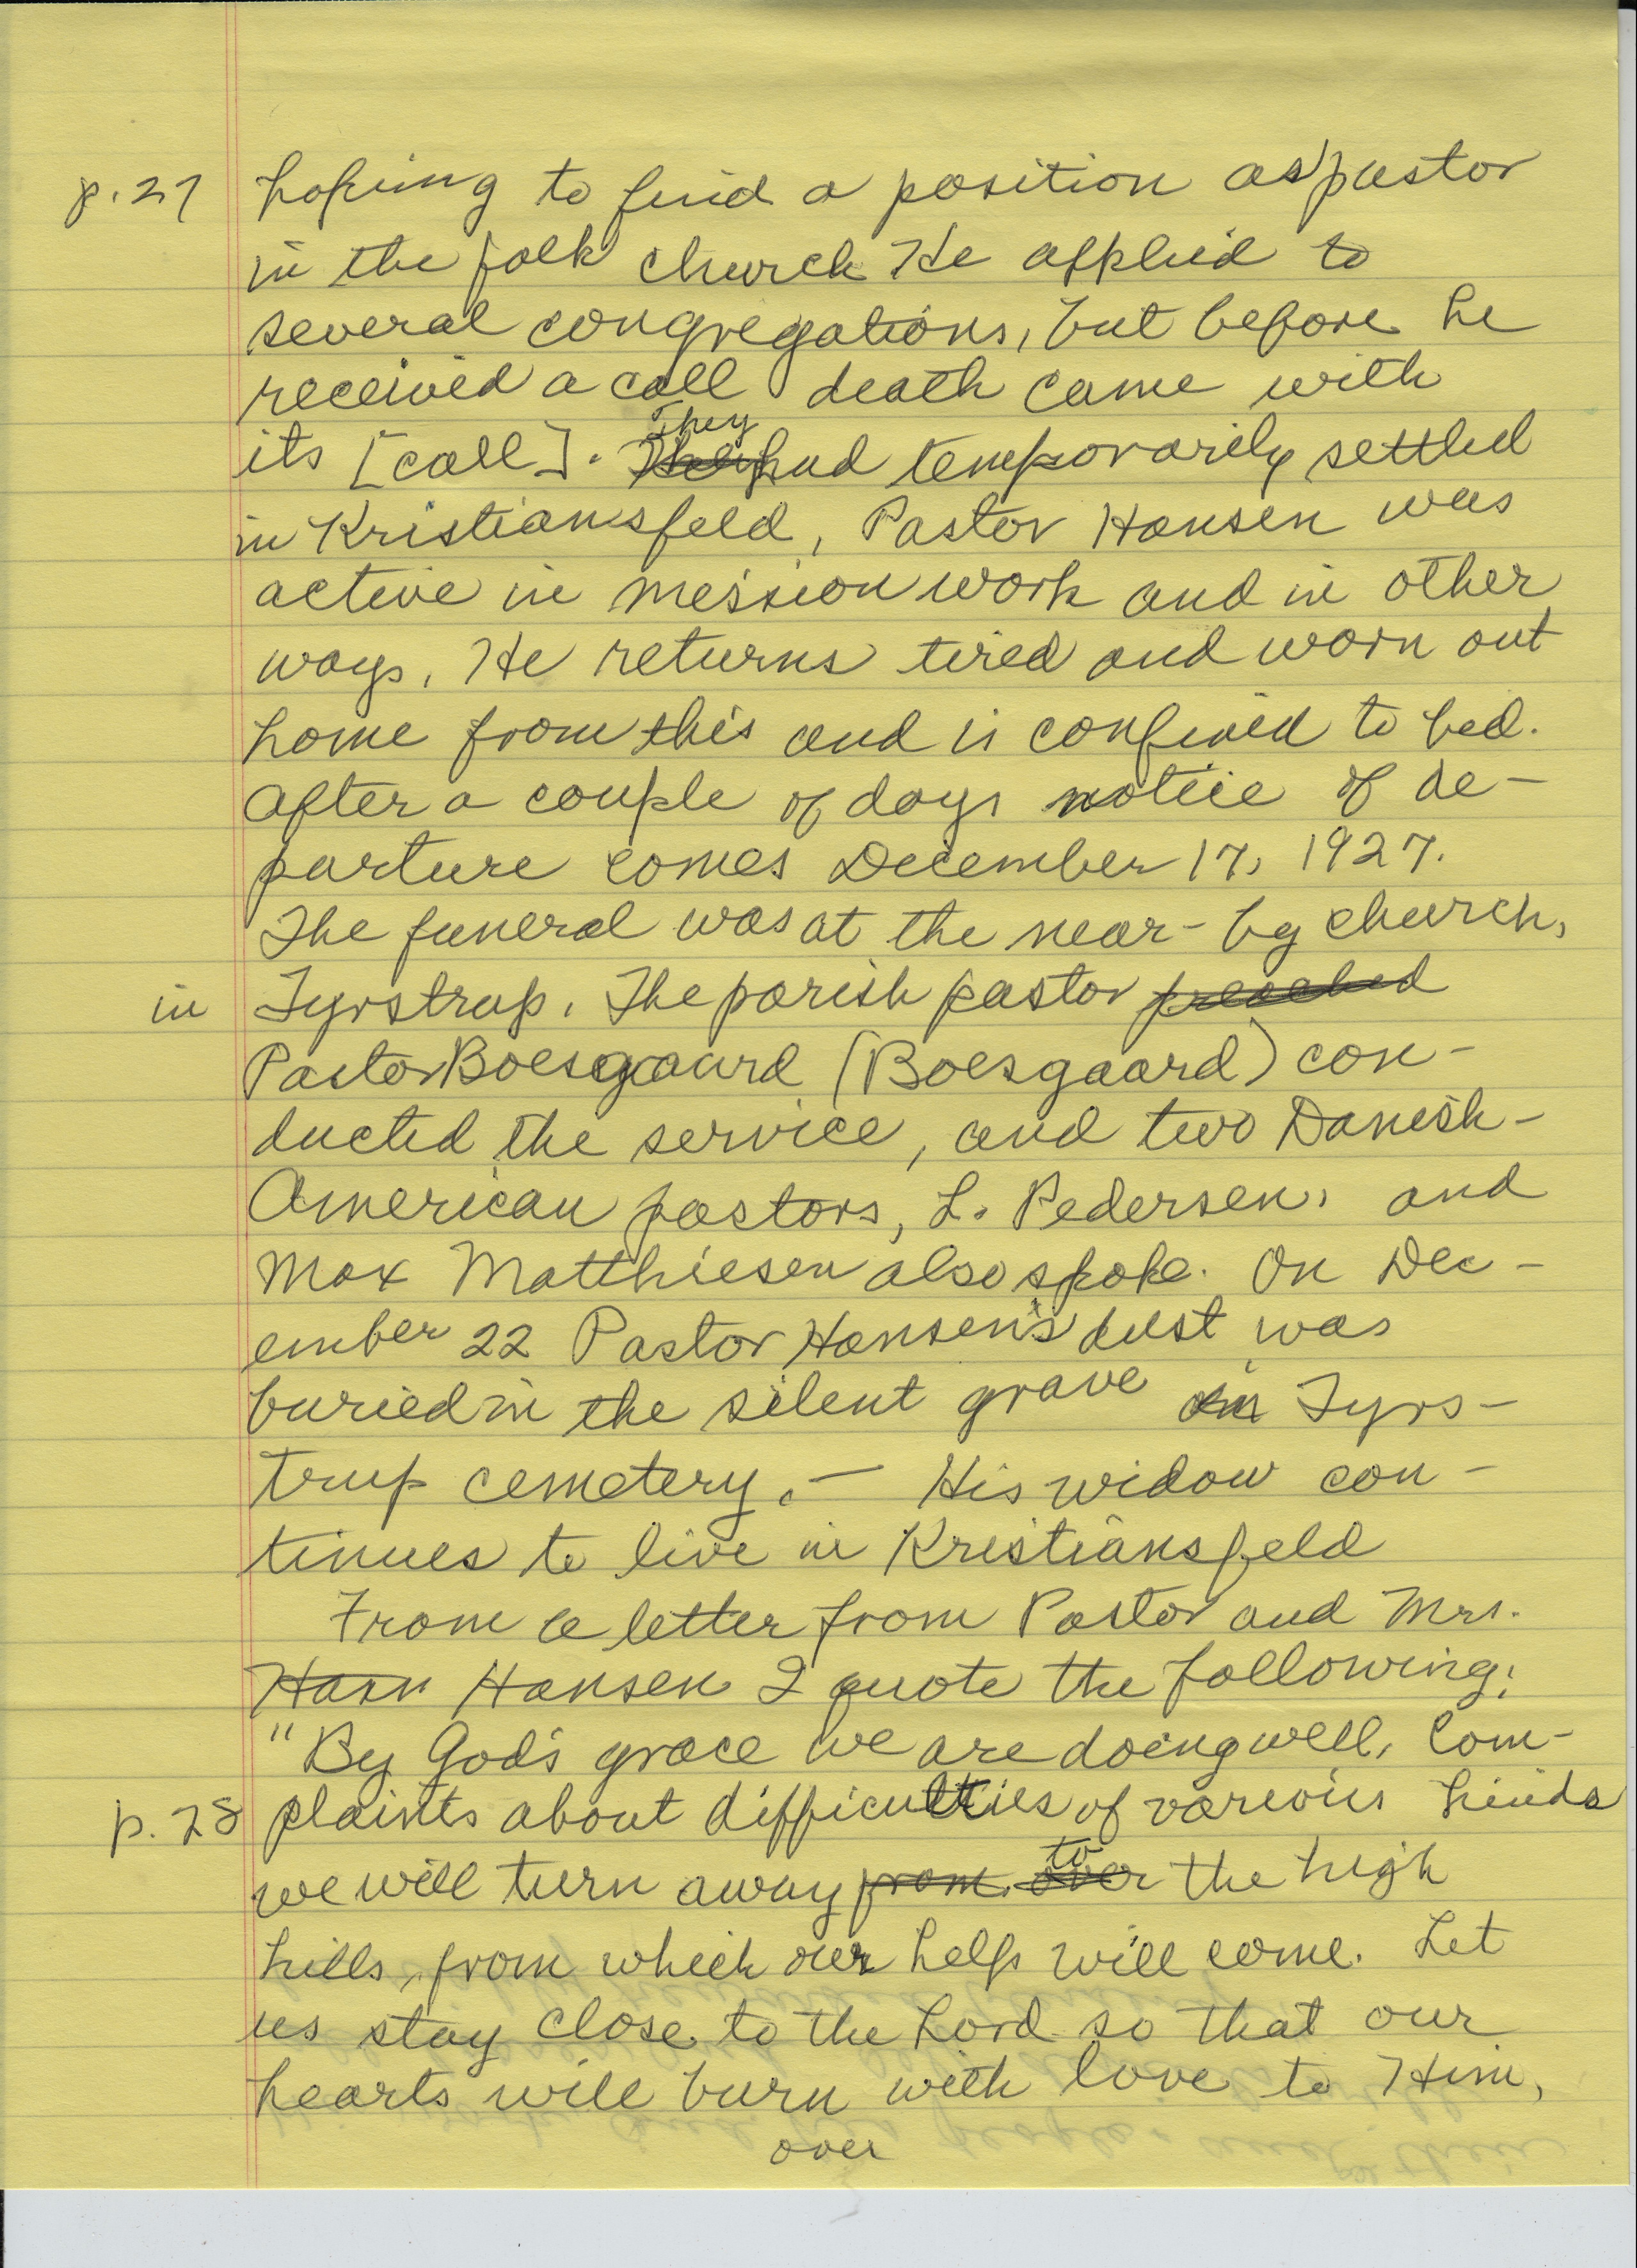 p.27 hoping to find a position as pastor
in the folk church He applied to
several congregations, but before he
received a call death came with
They
its [call]. They had temporarily settled
in Kristiansfeld, Pastor Hansen was
active in mission work and in other
ways. He returns tired and worn out
home from this and is confined to bed.
After a couple of days notice of de-
parture comes December 17, 1927.
The funeral was at the near-by church,
in Tyrstrup. The parish pastor preached
Pastor Boesgaard (Boesgaard) con-
ducted the service, and two Danish-
American pastors, L. Pedersen, and
Max Matthiesen also spoke. On Dec-
ember 22 Pastor Hansen's dust was
buried in the silent grave in Tyrs-
trup cemetery. — His widow con-
tinues to live in Kristiansfeld
From a letter from Pastor and Mrs.
Hann Hansen I quote the following:
"By God's grace we are doing well. Com-
p.28 plaints about difficulties of various kinds
to
we will turn away from over the high
hills, from which our help will come. Let
us stay close to the Lord so that our
hearts will burn with love to Him,
over